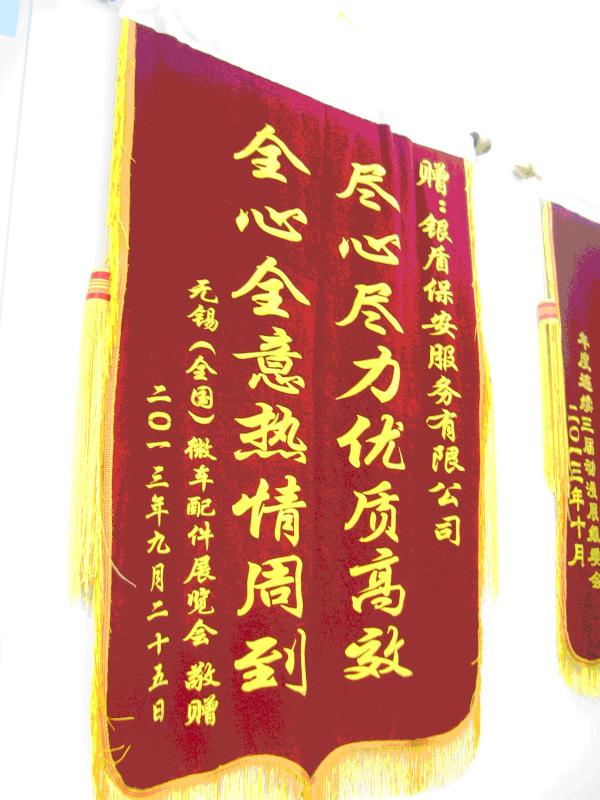 赠：银盾保安服务有限公司
尽心尽力优质高效
全心全意热情周到
无锡（全国）微车配件展览会 敬赠
二〇一三年九月二十五日
二〇一二年十月